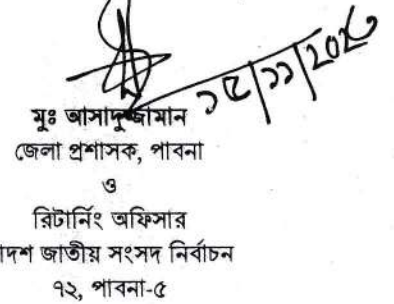 ১৫/১১/২০২৩
মুঃ আসাদুজ্জামান
জেলা প্রশাসক, পাবনা
ও
রিটার্নিং অফিসার
াদশ জাতীয় সংসদ নির্বাচন
৭২, পাবনা-৫